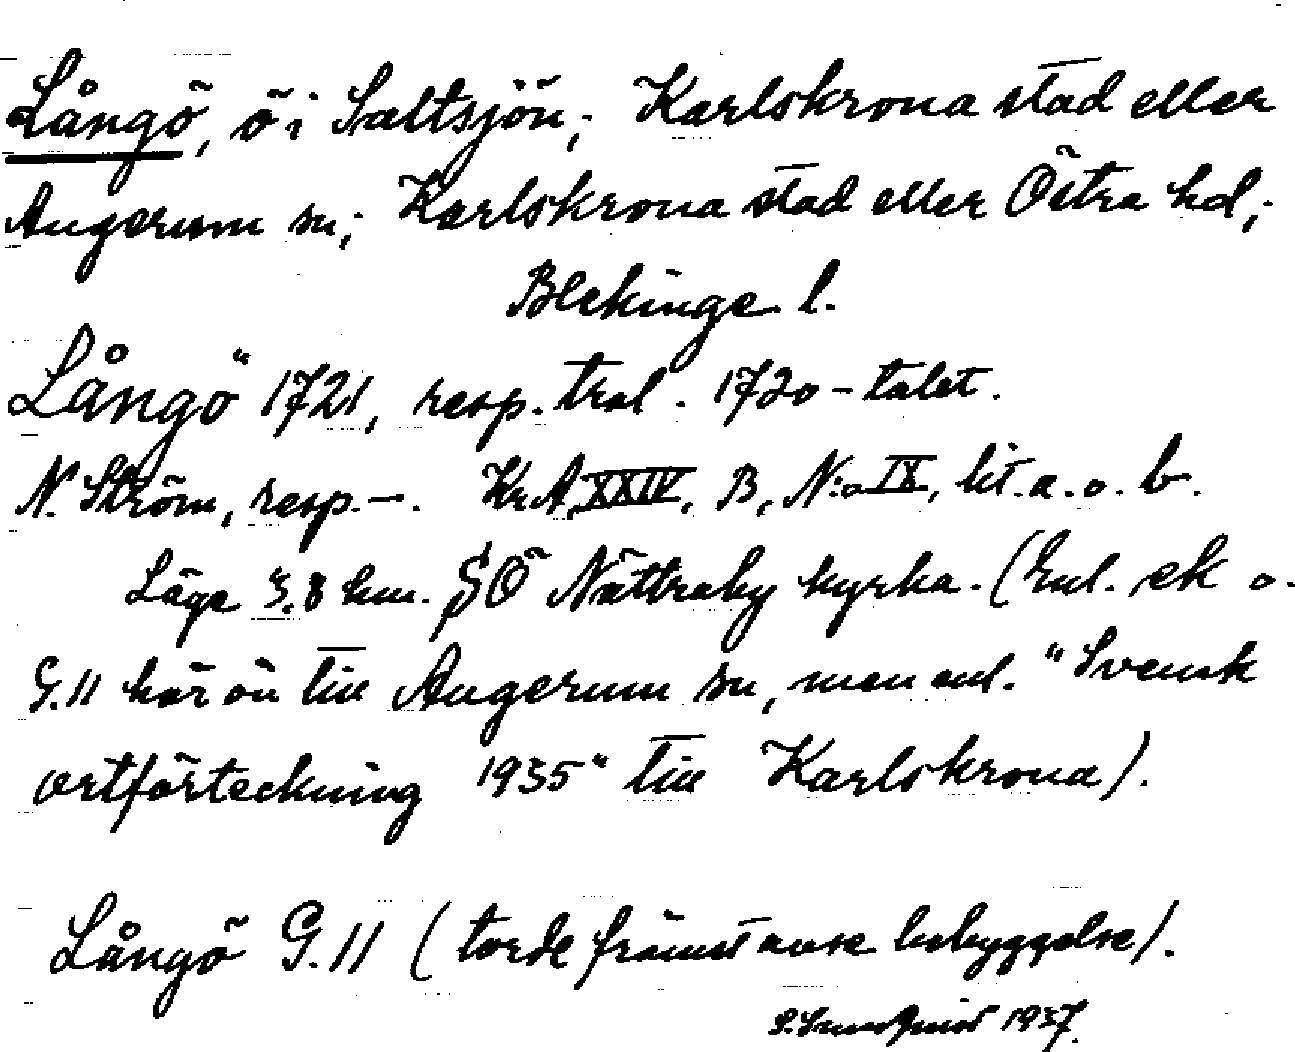 Långö, ö i Saltsjön; Karlskrona stad eller
Augerum sn; Karlskrona stad eller Östra hd;
Blekinge l.
Långö 1721, resp. trol. 1720-talet.
N. Ström, resp. -. Kr.A. XXIV, B, N:o IX, lit. a. o. b.
Läge 3.8 km. SÖ Nättraby kyrka. (Enl. ek o.
G.11 hör ön till Augerum sn, men enl. "Svensk
ortförteckning 1935" till Karlskrona).
Långö G.11 (torde främst avse bebyggelse).
1937.